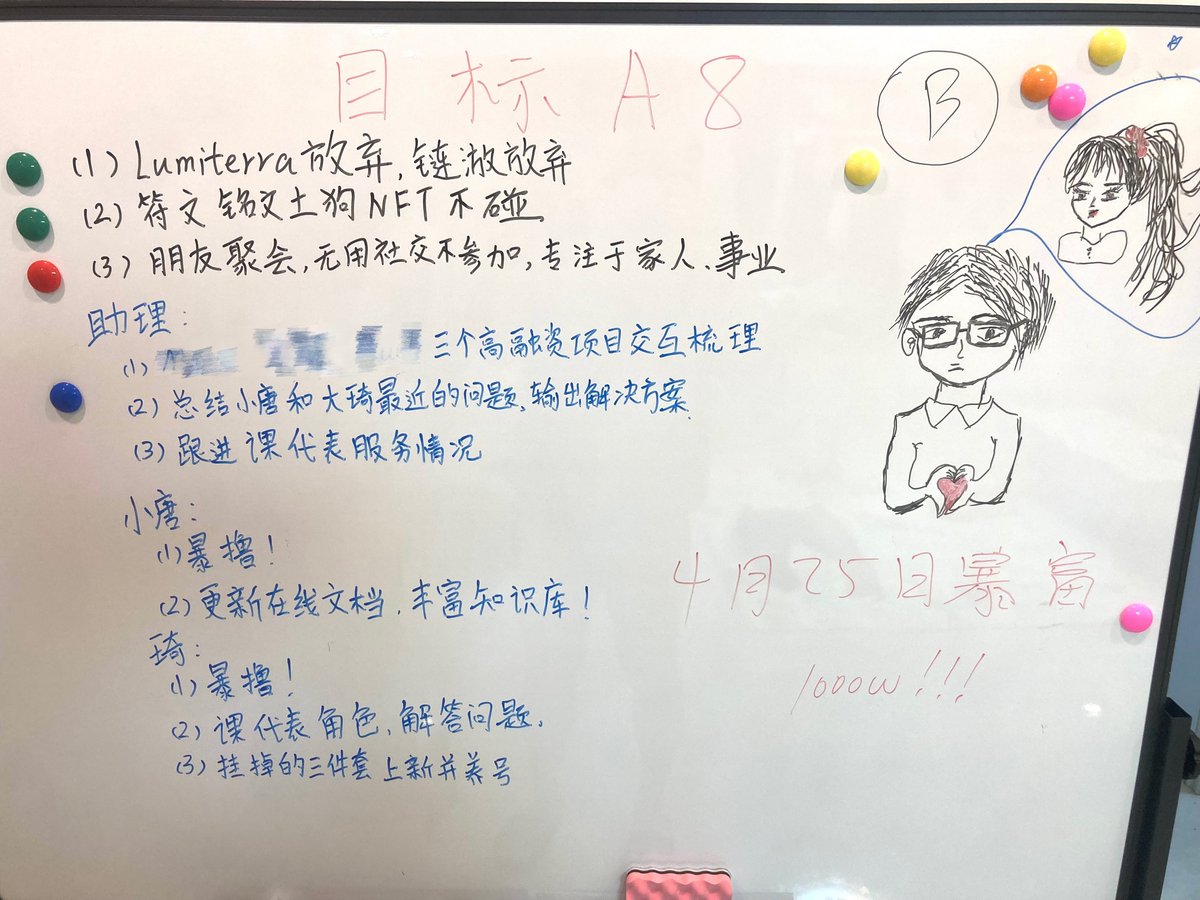 目标A8
B
(1) Lumiterra放弃,链游放弃
(2) 符文铭文土狗NFT不碰
(3) 朋友聚会,无用社交不参加,专注于家人、事业
助理:
(1) 三个高融资项目交互梳理
(2) 总结小唐和大琦最近的问题,输出解决方案.
(3) 跟进课代表服务情况
小唐:
(1) 暴撸!
(2) 更新在线文档,丰富知识库!
琦:
(1) 暴撸!
(2) 课代表角色,解答问题.
(3) 挂掉的三件套上新并养号
4月25日暴富
1000w!!!